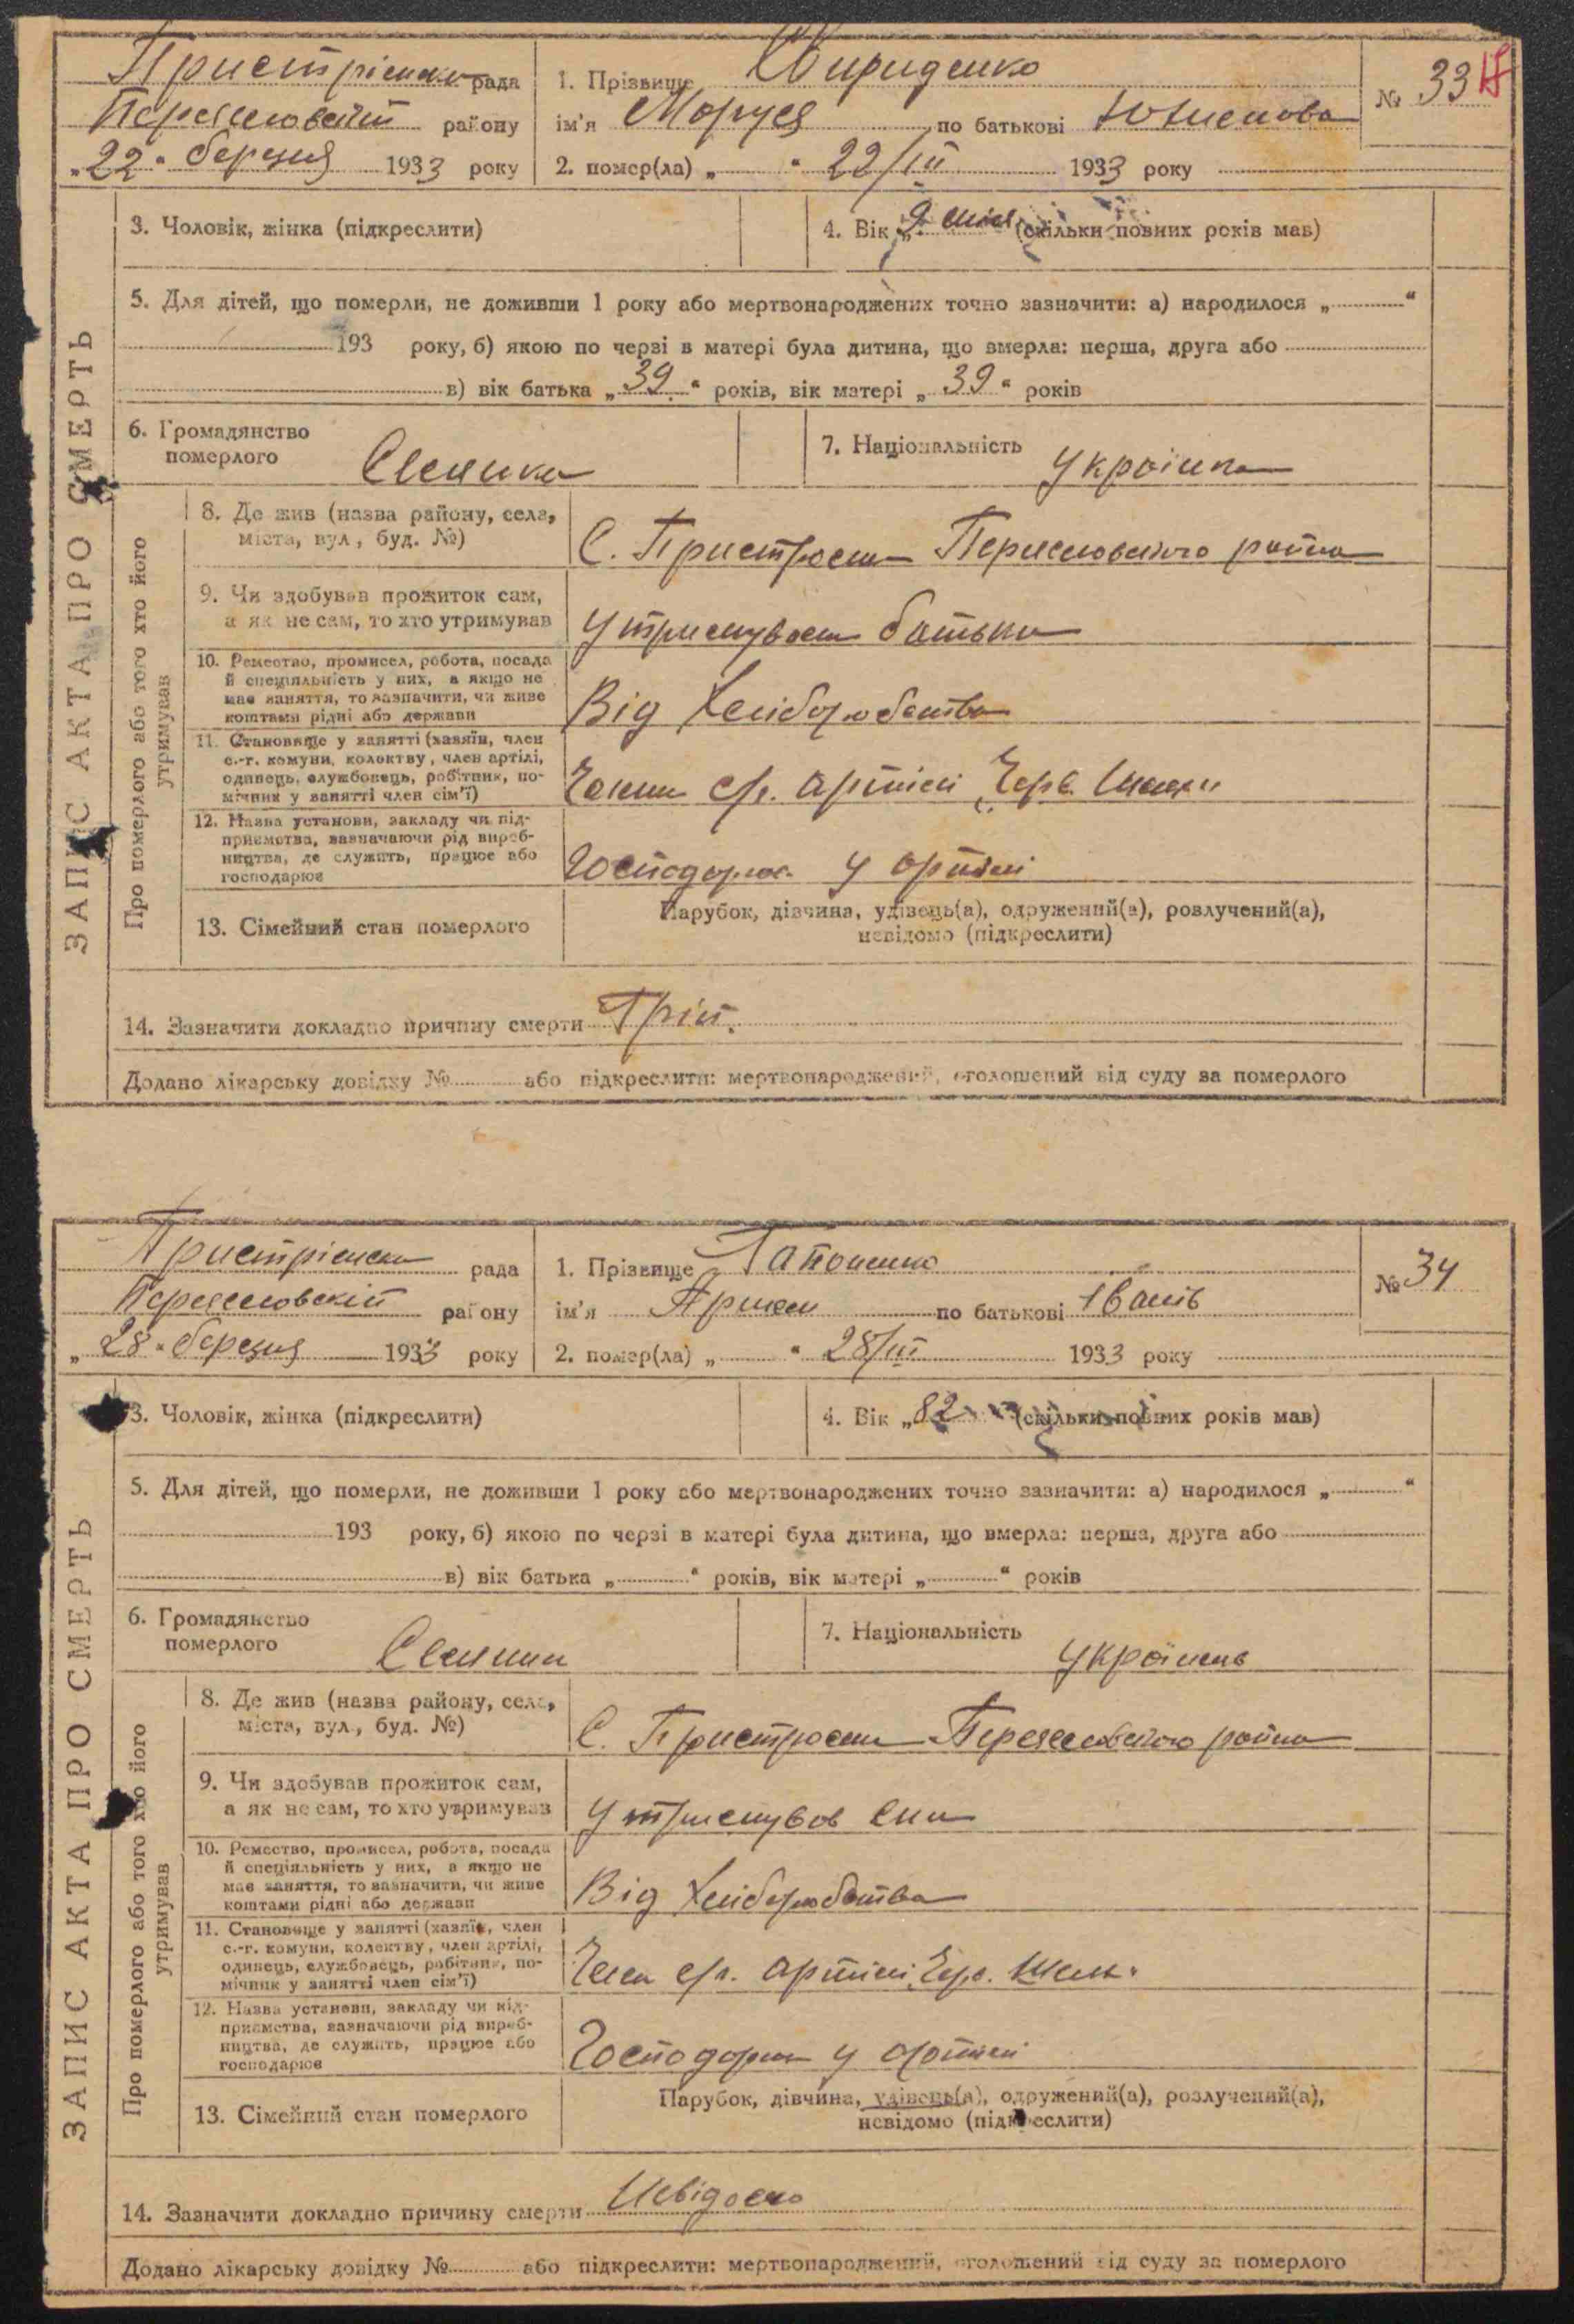 Пристрімска рада
Переяловський району
„22" березня 1933 року
1. Прізвище
ім'я Маруся по батькові
2. помер(ла) „ " 22/III 1933 року
№ 33
ЗАПИС АКТА ПРО СМЕРТЬ
3. Чоловік, жінка (підкреслити)
4. Вік „9 (скільки повних років мав)
5. Для дітей, що померли, не доживши 1 року або мертвонароджених точно зазначити: а) народилося „ "
193 року, б) якою по черзі в матері була дитина, що вмерла: перша, друга або
в) вік батька „39" років, вік матері „39" років
6. Громадянство
померлого
Селянка
7. Національність
Українка
Про померлого або того хто його
утримував
8. Де жив (назва району, села,
міста, вул., буд. №)
С. Пристроми Переяловського району
9. Чи здобував прожиток сам,
а як не сам, то хто утримував
Утримували батьки
10. Ремество, промисел, робота, посада
й спеціяльність у них, а якщо не
має заняття, то зазначити, чи живе
коштами рідні або держави
Від Хліборобства
11. Становище у занятті (хазяїн, член
с.-г. комуни, колективу, член артілі,
одинець, службовець, робітник, по-
мічник у занятті член сім'ї)
Члени с/г. артілі Черв. Шлях
12. Назва установи, закладу чи під-
приємства, зазначаючи рід вироб-
ництва, де служить, працює або
господарює
Господарює у артілі
13. Сімейний стан померлого
Парубок, дівчина, удівець(а), одружений(а), розлучений(а),
невідомо (підкреслити)
14. Зазначити докладно причину смерти Гріп.
Додано лікарську довідку № або підкреслити: мертвонароджений, оголошений від суду за померлого
Пристрімска рада
Переяловський району
„28" березня 1933 року
1. Прізвище Гапоненко
ім'я по батькові Іванів
2. помер(ла) „ " 28/III 1933 року
№ 34
ЗАПИС АКТА ПРО СМЕРТЬ
3. Чоловік, жінка (підкреслити)
4. Вік „82 (скільки повних років мав)
5. Для дітей, що померли, не доживши 1 року або мертвонароджених точно зазначити: а) народилося „ "
193 року, б) якою по черзі в матері була дитина, що вмерла: перша, друга або
в) вік батька „ " років, вік матері „ " років
6. Громадянство
померлого
Селянин
7. Національність
Українець
Про померлого або того хто його
утримував
8. Де жив (назва району, села,
міста, вул., буд. №)
С. Пристроми Переяловського району
9. Чи здобував прожиток сам,
а як не сам, то хто утримував
Утримував син
10. Ремество, промисел, робота, посада
й спеціяльність у них, а якщо не
має заняття, то зазначити, чи живе
коштами рідні або держави
Від Хліборобства
11. Становище у занятті (хазяїн, член
с.-г. комуни, колективу, член артілі,
одинець, службовець, робітник, по-
мічник у занятті член сім'ї)
Член с/г. артілі Чер. Шлях
12. Назва установи, закладу чи під-
приємства, зазначаючи рід вироб-
ництва, де служить, працює або
господарює
Господарює у артілі
13. Сімейний стан померлого
Парубок, дівчина, удівець(а), одружений(а), розлучений(а),
невідомо (підкреслити)
14. Зазначити докладно причину смерти Невідомо
Додано лікарську довідку № або підкреслити: мертвонароджений, оголошений від суду за померлого